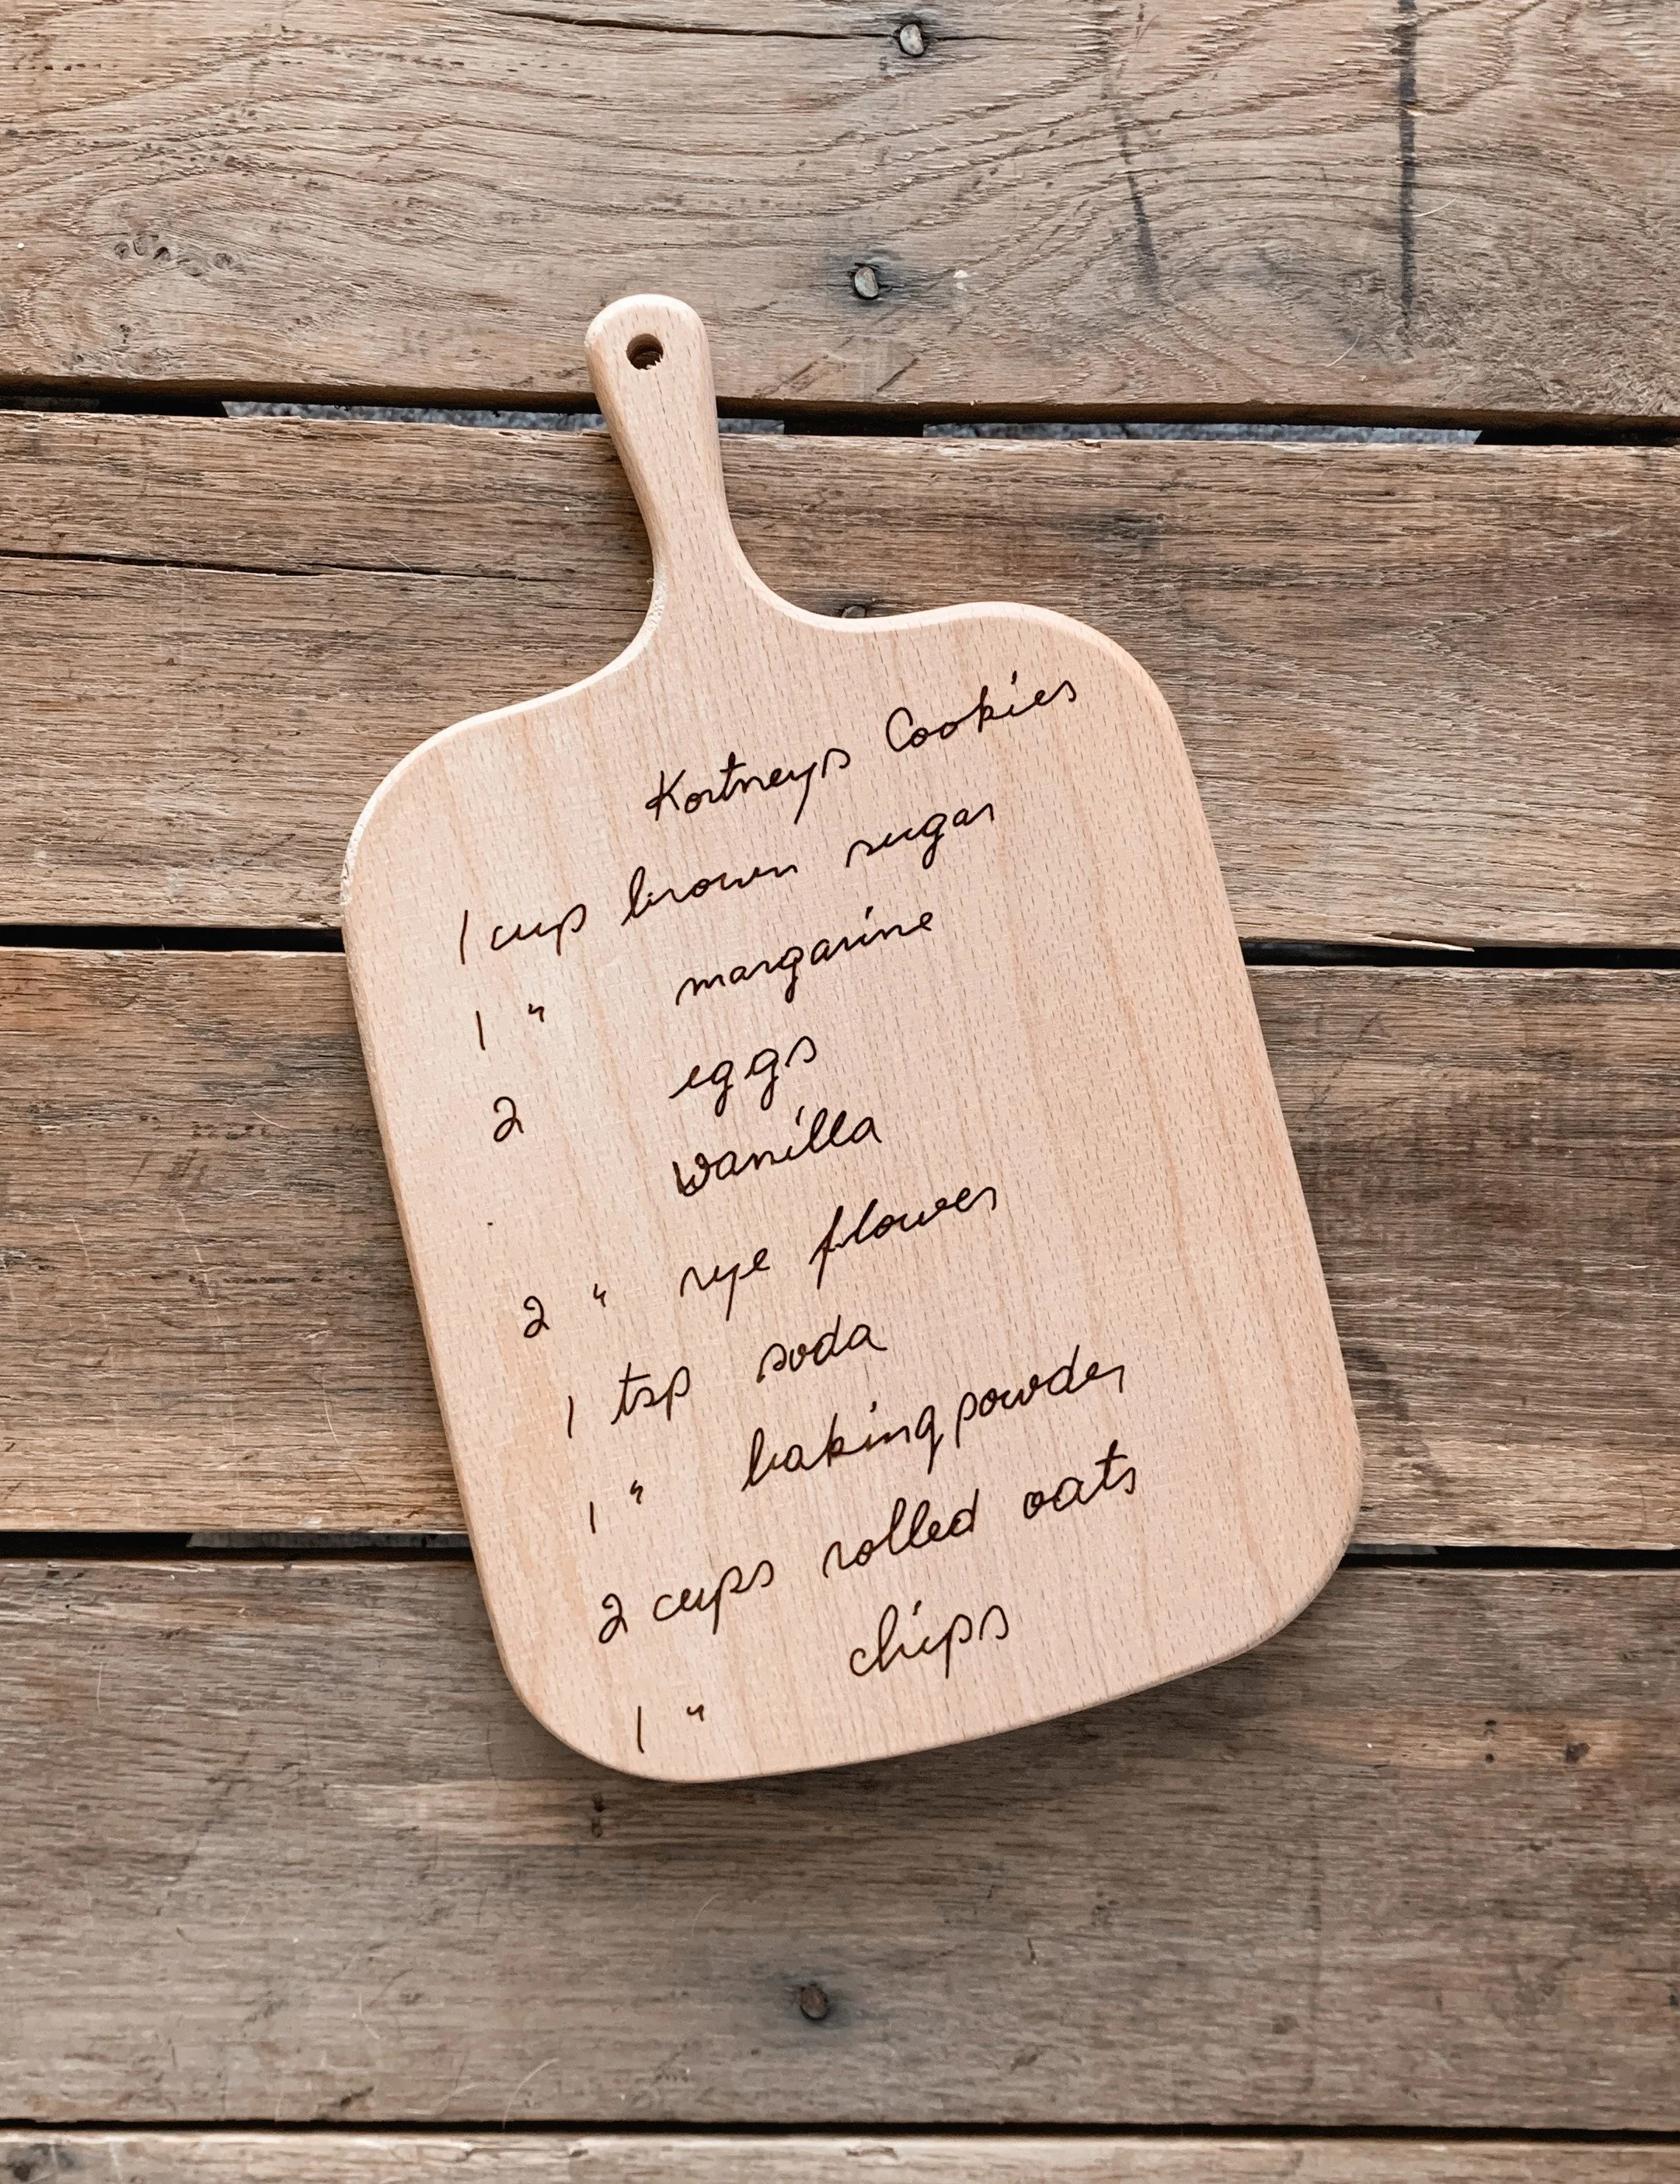 Kortneys Cookies
1 cup brown sugar
1 " margarine
2 eggs
Vanilla
2 " rye flower
1 tsp soda
1 " baking powder
2 cups rolled oats
1 " chips